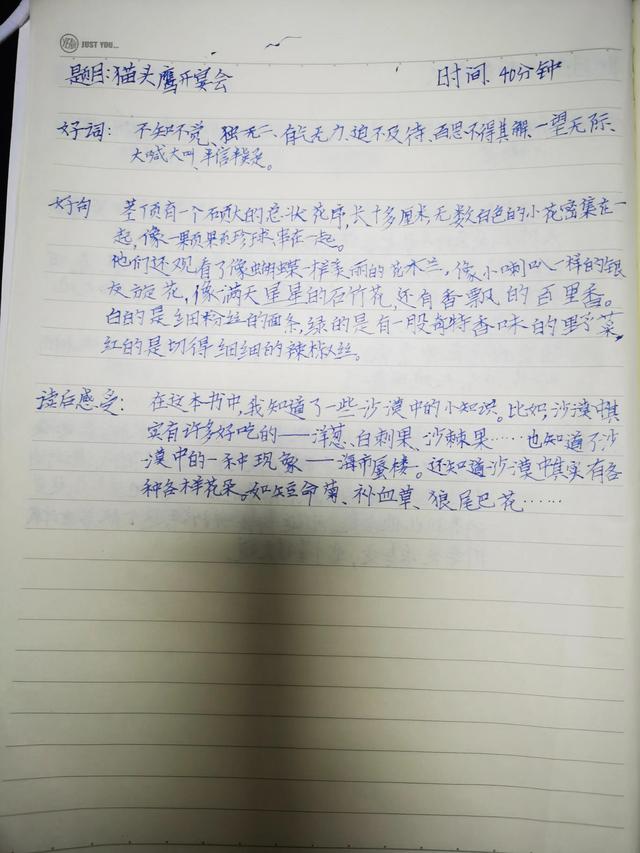 YEAH JUST YOU...
题目:猫头鹰开宴会 时间、40分钟
好词: 不知不觉、独一无二、有气无力、迫不及待、百思不得其解、一望无际、
大喊大叫、半信半疑。
好句 茎顶有一个硕大的总状花序,长十多厘米,无数白色的小花密集在一
起,像一颗颗珍珠串在一起。
他们还观看了像蝴蝶一样美丽的花木兰,像小喇叭一样的银
灰旋花,像满天星星的石竹花,还有香飘的百里香。
白的是细粉丝的面条,绿的是有一股奇特香味的野菜,
红的是切得细细的辣椒丝。
读后感受: 在这本书中,我知道了一些沙漠中的小知识。比如沙漠中其
实有许多好吃的——洋葱、白刺果、沙棘果……也知道了沙
漠中的一种现象——海市蜃楼。还知道沙漠中其实有各
种各样花朵。如短命菊、补血草、狼尾巴花……